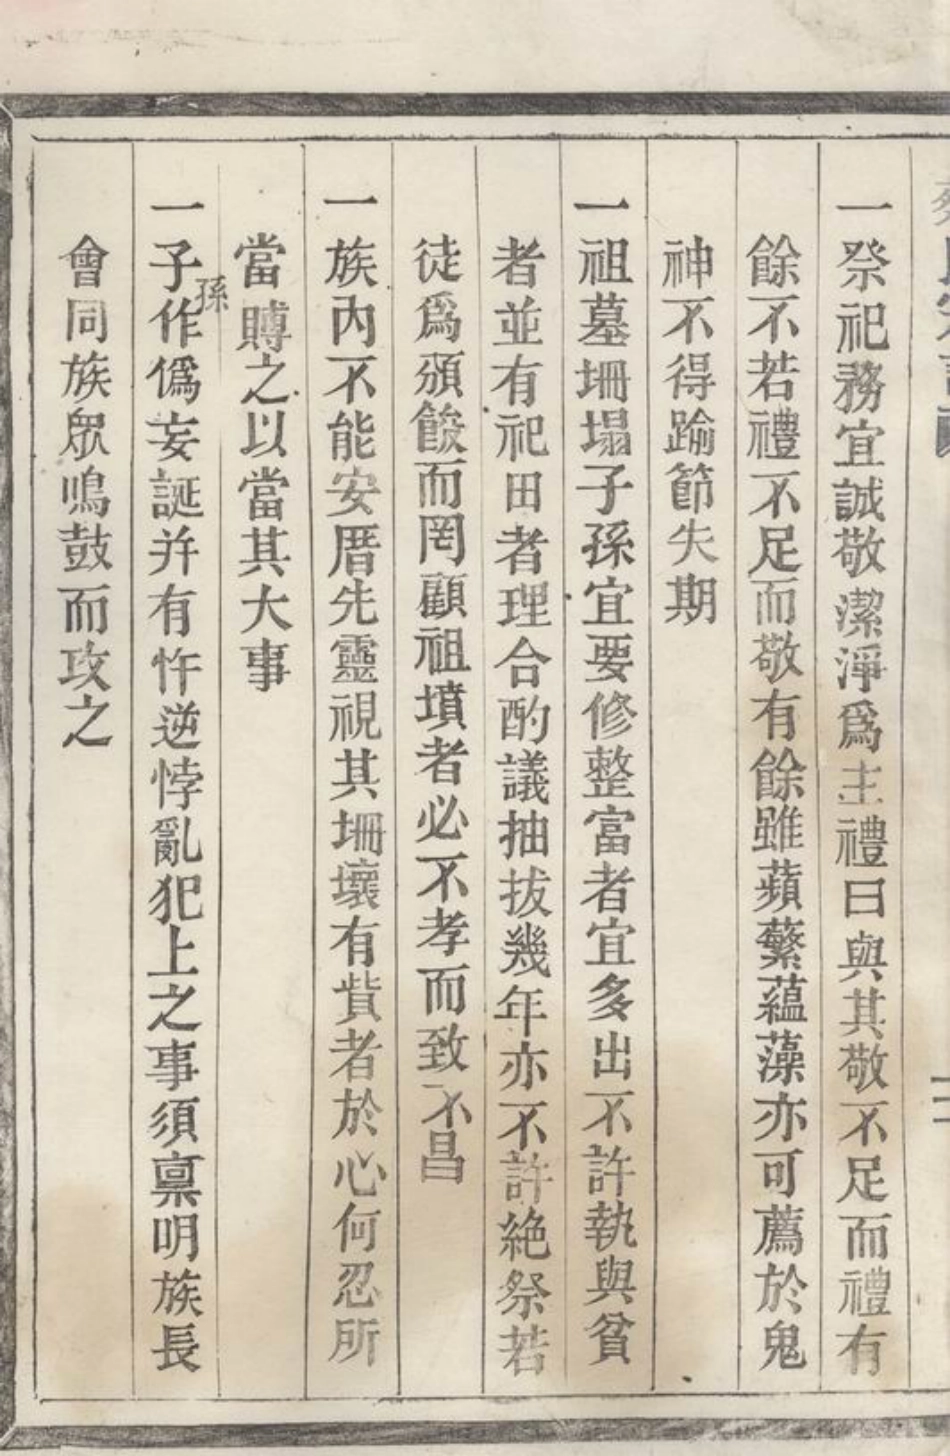 一祭祀務宜誠敬潔淨爲主禮曰與其敬不足而禮有
餘不若禮不足而敬有餘雖蘋蘩蘊藻亦可薦於鬼
神不得踰節失期
一祖墓坍塌子孫宜要修整富者宜多出不許執與貧
者並有祀田者理合酌議抽拔幾年亦不許絶祭若
徒爲頒餕而罔顧祖墳者必不孝而致不昌
一族內不能安厝先靈視其坍壞有貲者於心何忍所
當賻之以當其大事
一子孫作僞妄誕并有忤逆悖亂犯上之事須稟明族長
會同族眾鳴鼓而攻之